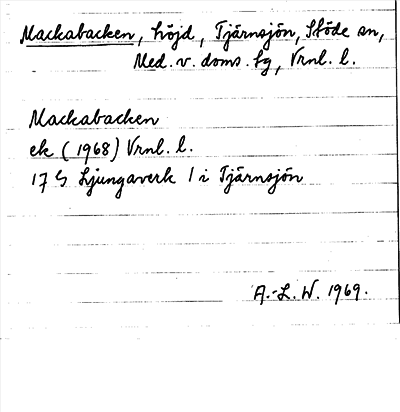 Mackabacken, höjd, Tjärnsjön, Stöde sn,
Med. v. doms. fg, Vrnl. l.
Mackabacken
ek (1968) Vrnl. l.
17 G Ljungaverk 1 i Tjärnsjön
A.-L. W. 1969.